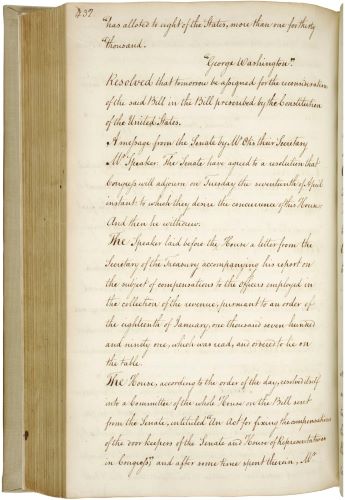 437
"has alloted to eight of the States, more than one for thirty
"thousand.
"George Washington."
Resolved that tomorrow be assigned for the reconsideration
of the said Bill in the Bill prescribed by the Constitution
of the United States.
A message from the Senate by Mr. Otis their Secretary
Mr. Speaker: The Senate have agreed to a resolution that
Congress will adjourn on Tuesday the seventeenth of April
instant: to which they desire the concurrence of this House:
And then he withdrew.
The Speaker laid before the House a letter from the
Secretary of the Treasury accompanying his report on
the subject of compensations to the officers employed in
the collection of the revenue, pursuant to an order of
the eighteenth of January, one thousand seven hundred
and ninety one, which was read, and ordered to lie on
the table.
The House, according to the order of the day, resolved itself
into a Committee of the whole House on the Bill sent
from the Senate, intituled "An Act for fixing the compensations
of the door keepers of the Senate and House of Representatives
in Congress" and after some time spent therein, Mr.